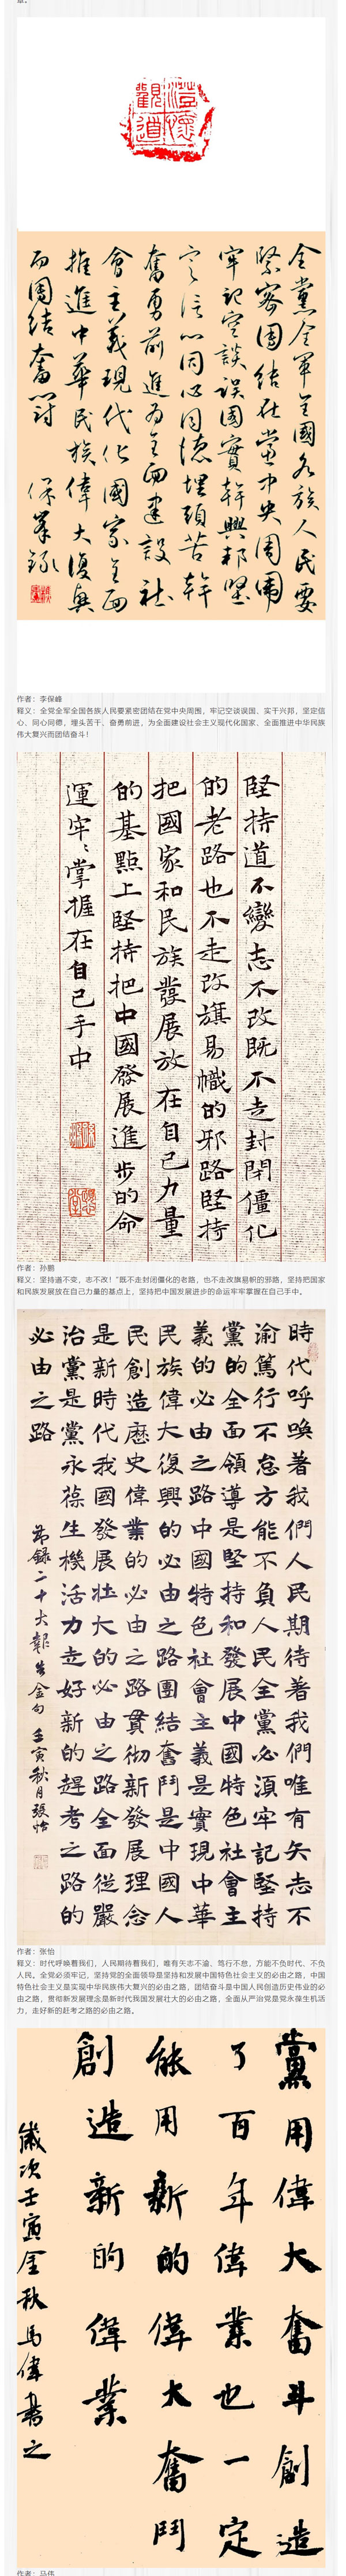 章。
澄懷
觀道
全黨全軍全國各族人民要
緊密團結在黨中央周圍
牢記空談誤國實幹興邦堅
定信心同心同德埋頭苦幹
奮勇前進為全面建設社
會主義現代化國家全面
推進中華民族偉大復興
而團結奮鬥 保峯錄
作者：李保峰
释义：全党全军全国各族人民要紧密团结在党中央周围，牢记空谈误国、实干兴邦，坚定信心、同心同德，埋头苦干、奋勇前进，为全面建设社会主义现代化国家、全面推进中华民族伟大复兴而团结奋斗！
堅持道不變志不改既不走封閉僵化
的老路也不走改旗易幟的邪路堅持
把國家和民族發展放在自己力量
的基點上堅持把中國發展進步的命
運牢々掌握在自己手中
作者：孙鹏
释义：坚持道不变，志不改！“既不走封闭僵化的老路，也不走改旗易帜的邪路，坚持把国家和民族发展放在自己力量的基点上，坚持把中国发展进步的命运牢牢掌握在自己手中。
時代呼喚著我們人民期待著我們唯有矢志不
渝篤行不怠方能不負人民全黨必須牢記堅持
黨的全面領導是堅持和發展中國特色社會主
義的必由之路中國特色社會主義是實現中華
民族偉大復興的必由之路團結奮鬥是中國人
民創造歷史偉業的必由之路貫彻新發展理念
是新時代我國發展壯大的必由之路全面從嚴
治黨是黨永葆生機活力走好新的趕考之路的
必由之路
節錄二十大報告金句 壬寅秋月張怡
作者：张怡
释义：时代呼唤着我们，人民期待着我们，唯有矢志不渝、笃行不怠，方能不负时代、不负人民。全党必须牢记，坚持党的全面领导是坚持和发展中国特色社会主义的必由之路，中国特色社会主义是实现中华民族伟大复兴的必由之路，团结奋斗是中国人民创造历史伟业的必由之路，贯彻新发展理念是新时代我国发展壮大的必由之路，全面从严治党是党永葆生机活力，走好新的赶考之路的必由之路。
黨用偉大奮斗創造
了百年偉業也一定
能用新的偉大奮鬥
創造新的偉業
歲次壬寅金秋馬偉書之
作者：马伟